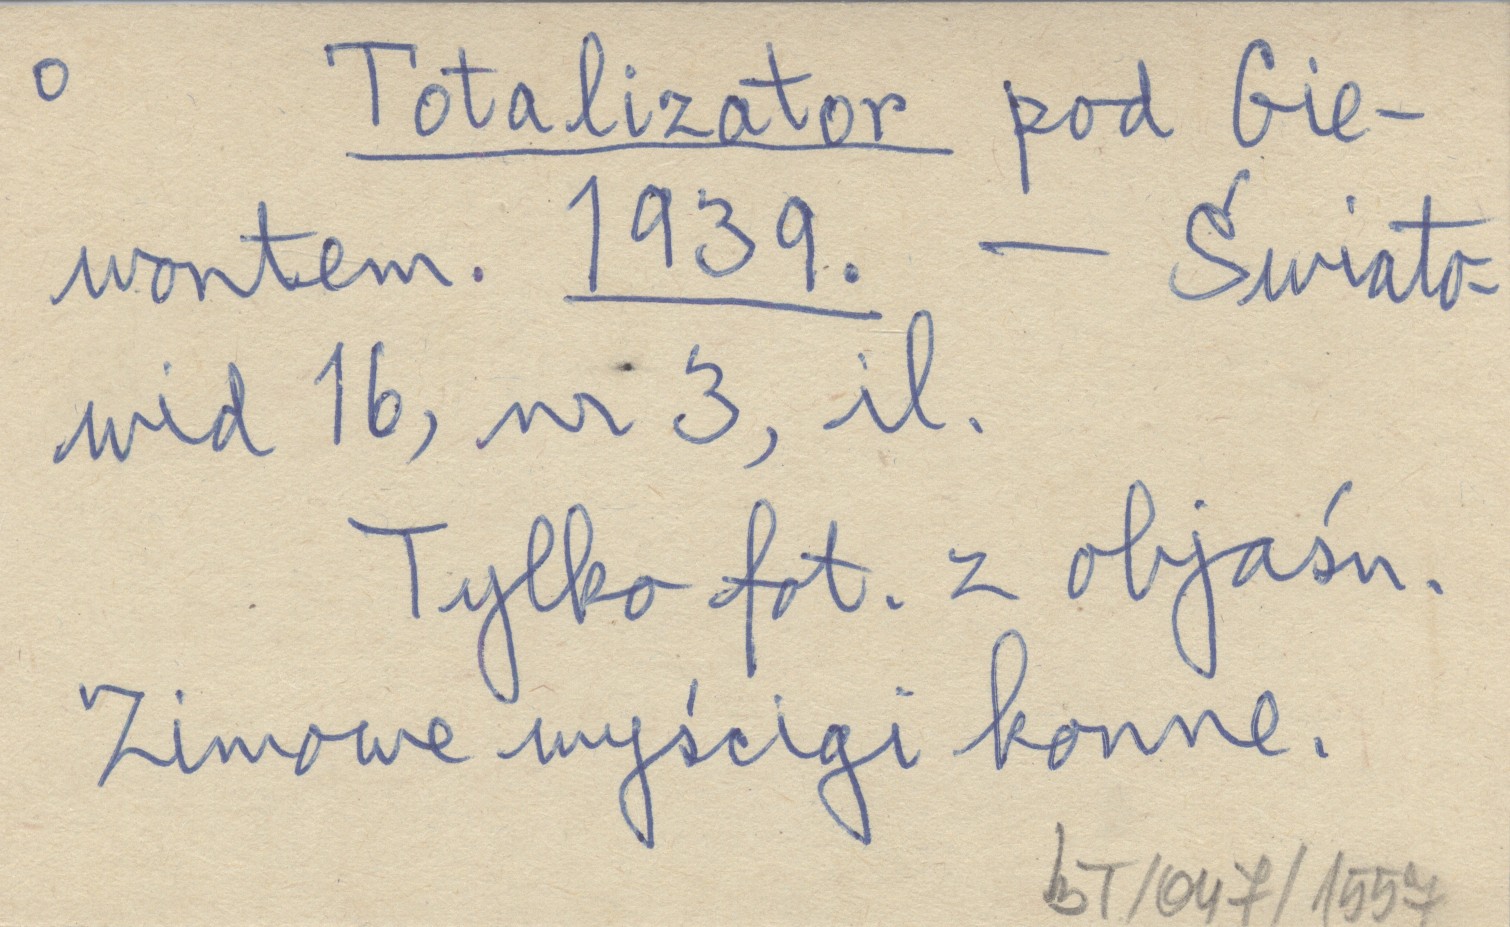 o Totalizator pod Gie-
wontem. 1939. — Świato-
wid 16, nr 3, il.
Tylko fot. z objaśn.
Zimowe wyścigi konne.
bT/047/1557